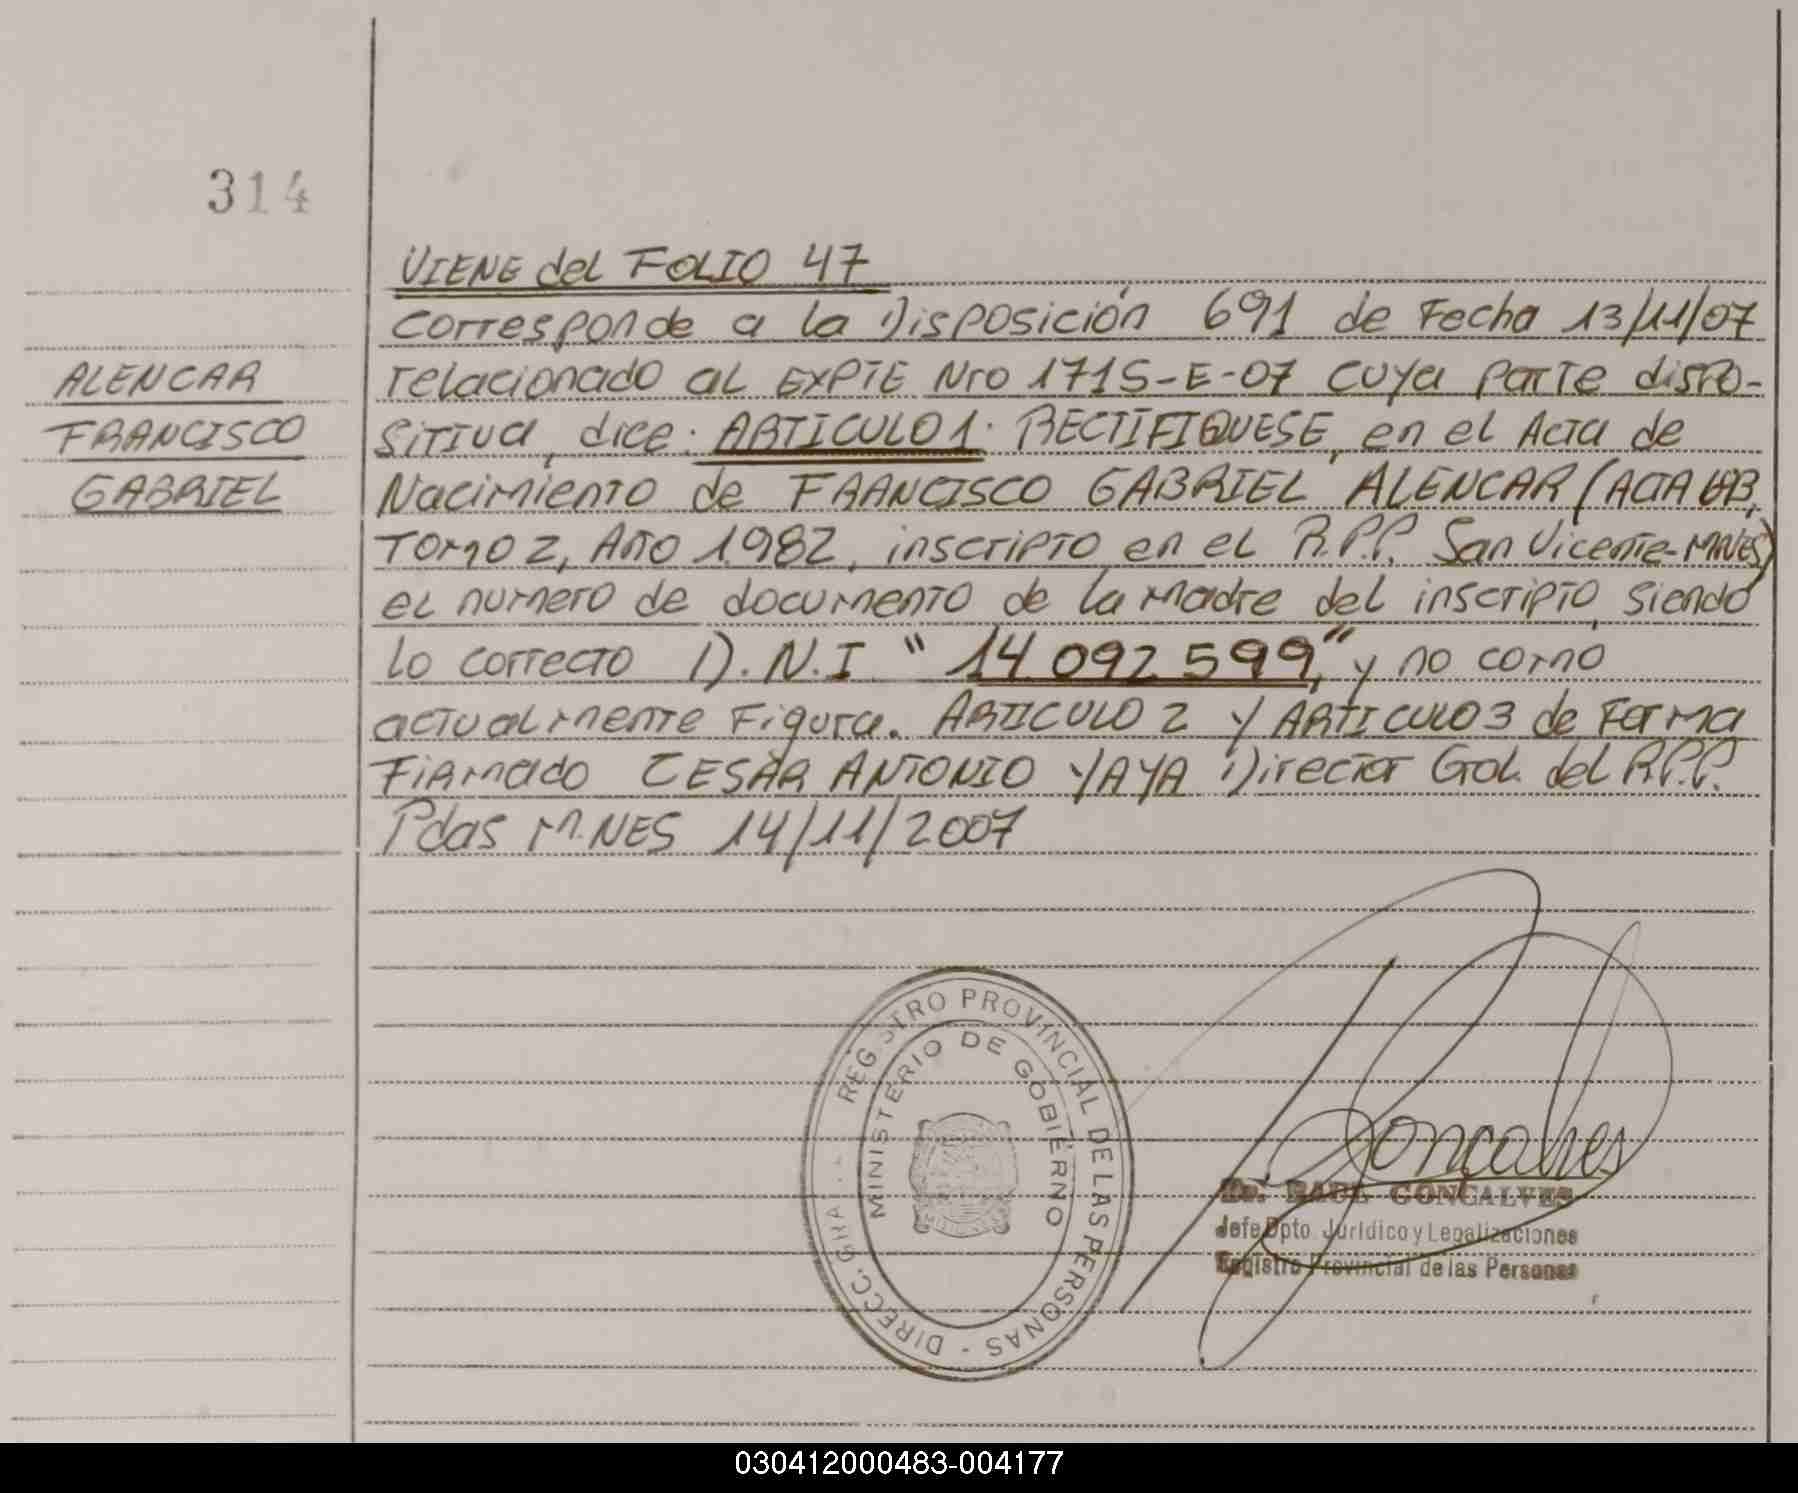 314
VIENE del FOLIO 47
Corresponde a la Disposición 691 de Fecha 13/11/07
ALENCAR
relacionado al EXPTE Nro 1715-E-07 cuya parte dispo-
FRANCISCO
sitiva, dice: ARTICULO 1. RECTIFIQUESE, en el Acta de
GABRIEL
Nacimiento de FRANCISCO GABRIEL ALENCAR (ACTA
Tomo 2, Año 1.982, inscripto en el R.P.P. San Vicente-MNES)
el numero de documento de la madre del inscripto, siendo
lo correcto D.N.I "14.092.599," y no como
actualmente Figura. ARTICULO 2 y ARTICULO 3 de Forma
Firmado CESAR ANTONIO YAYA Director Gral. del R.P.P.
Pdas M.NES 14/11/2007
REGISTRO PROVINCIAL DE LAS PERSONAS - DIRECC. GRAL.
MINISTERIO DE GOBIERNO
Gonçalves
Dr. RAUL GONÇALVES
Jefe Dpto. Jurídico y Legalizaciones
Registro Provincial de las Personas
030412000483-004177